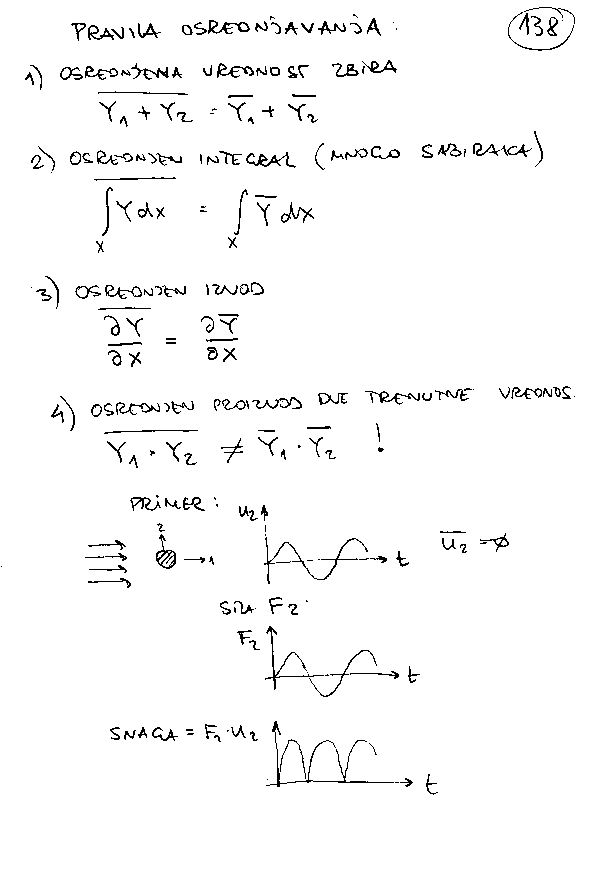 PRAVILA OSREDNJAVANJA :
138
1) OSREDNJENA VREDNOST ZBIRA
\overline{Y₁ + Y₂} = \overline{Y₁} + \overline{Y₂}
2) OSREDNJEN INTEGRAL (MNOGO SABIRAKA)
\overline{∫_X Y dx} = ∫_X \overline{Y} dx
3) OSREDNJEN IZVOD
\overline{∂Y/∂X} = ∂\overline{Y}/∂X
4) OSREDNJEN PROIZVOD DVE TRENUTNE VREDNOS.
\overline{Y₁ · Y₂} ≠ \overline{Y₁} · \overline{Y₂} !
PRIMER :
2
1
U₂
t
\overline{U₂} = 0
SILA F₂
F₂
t
SNAGA = F₂·U₂
t